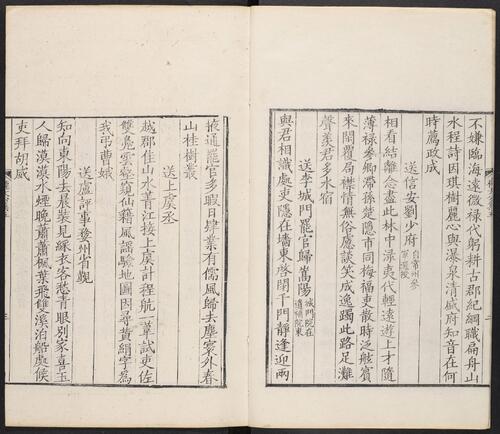 不嫌臨海遠微祿代躬耕古郡紀綱職扁舟山
水程詩因琪樹麗心與瀑泉清盛府知音在何
時薦政成
送信安劉少府 自常州參軍選授
相看結離念盡此林中淥夷代輕遠遊上才隨
薄祿參卿滯孫楚隱市同梅福吏散時泛絃賓
來閒覆局襟情無俗慮談笑成逸躅此路足灘
聲羨君多水宿
送李城門罷官歸嵩陽 城門院在遺補院東
與君相識處吏隱在墻東啓閉千門靜逢迎兩
掖通罷官多暇日肄業有儒風歸去塵寰外春
山桂樹叢
送上虞丞
越郡佳山水菁江接上虞計程航一葦試吏佐
雙鳧雲壑窺仙籍風謠驗地圖因尋黃絹字為
我弔曹
送盧評事婺州省覲
知向東陽去晨裝見綵衣客愁青眼別家喜玉
人歸漠漠水煙晚蕭蕭楓葉飛雙溪泊船處候
吏拜胡威